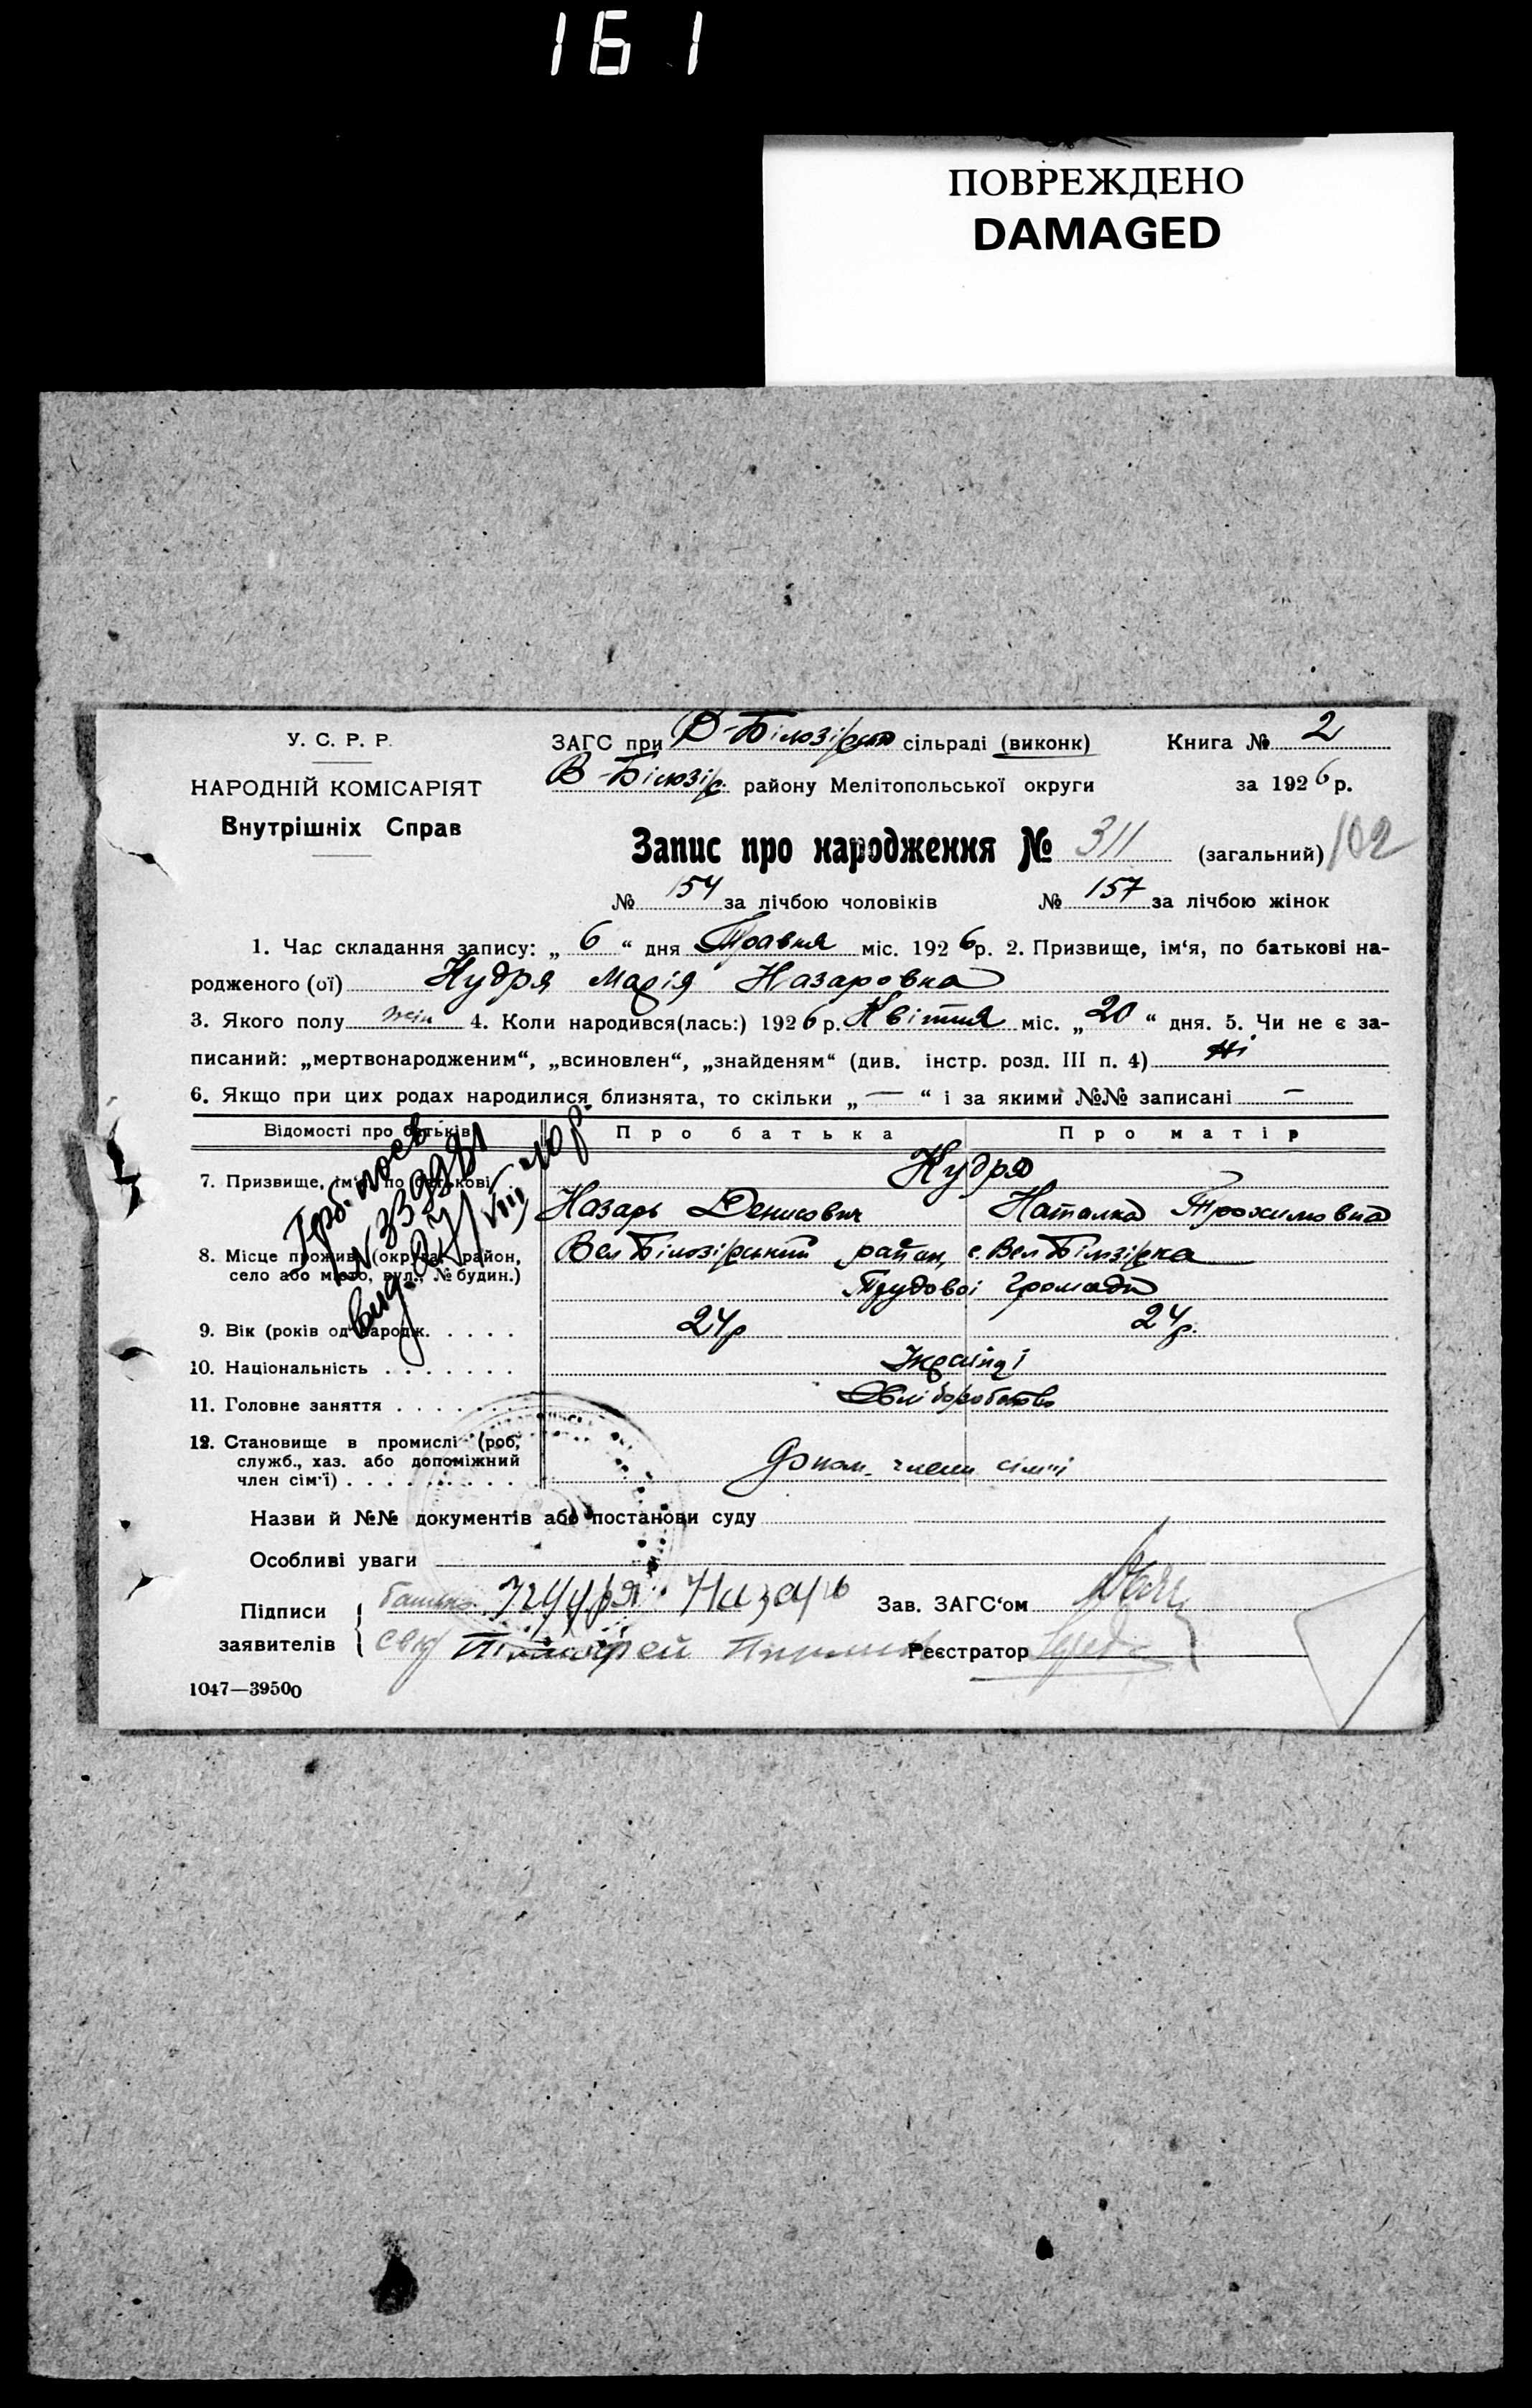 161
ПОВРЕЖДЕНО
DAMAGED
У. С. Р. Р.
НАРОДНІЙ КОМІСАРІЯТ
Внутрішніх Справ
ЗАГС при В-Білозірській сільраді (виконк) Книга № 2
В-Білозір. району Мелітопольської округи за 1926 р.
Запис про народження № 311 (загальний) 102
№ 154 за лічбою чоловіків № 157 за лічбою жінок
1. Час складання запису: „ 6 “ дня Травня міс. 1926 р. 2. Призвище, ім‘я, по батькові на-
родженого (ої) Кудря Марія Назаровна
3. Якого полу жін 4. Коли народився(лась:) 1926 р. Квітня міс. „ 20 “ дня. 5. Чи не є за-
писаний: „мертвонародженим“, „всиновлен“, „знайденям“ (див. інстр. розд. III п. 4) Ні
6. Якщо при цих родах народилися близнята, то скільки „ — “ і за якими №№ записані —
Відомості про батьків Про батька Про матір
7. Призвище, ім‘я, по батькові Кудря
Назарь Денисович Наталка Трохимовна
8. Місце прожив. (округа, район, Вел Білозірський район, с. Вел Білозірка
село або місто, вул., № будин.) Трудової Громади
9. Вік (років од народж. 24р 24р.
10. Національність Українці
11. Головне заняття Хліборобство
12. Становище в промислі (роб,
служб., хаз. або допоміжний
член сім‘ї) допом. члени сімї
вид. 27/VIII 40р.
Назви й №№ документів або постанови суду
Особливі уваги
Підписи батько Кудря Назарь Зав. ЗАГС‘ом
заявителів Реєстратор
1047—39500